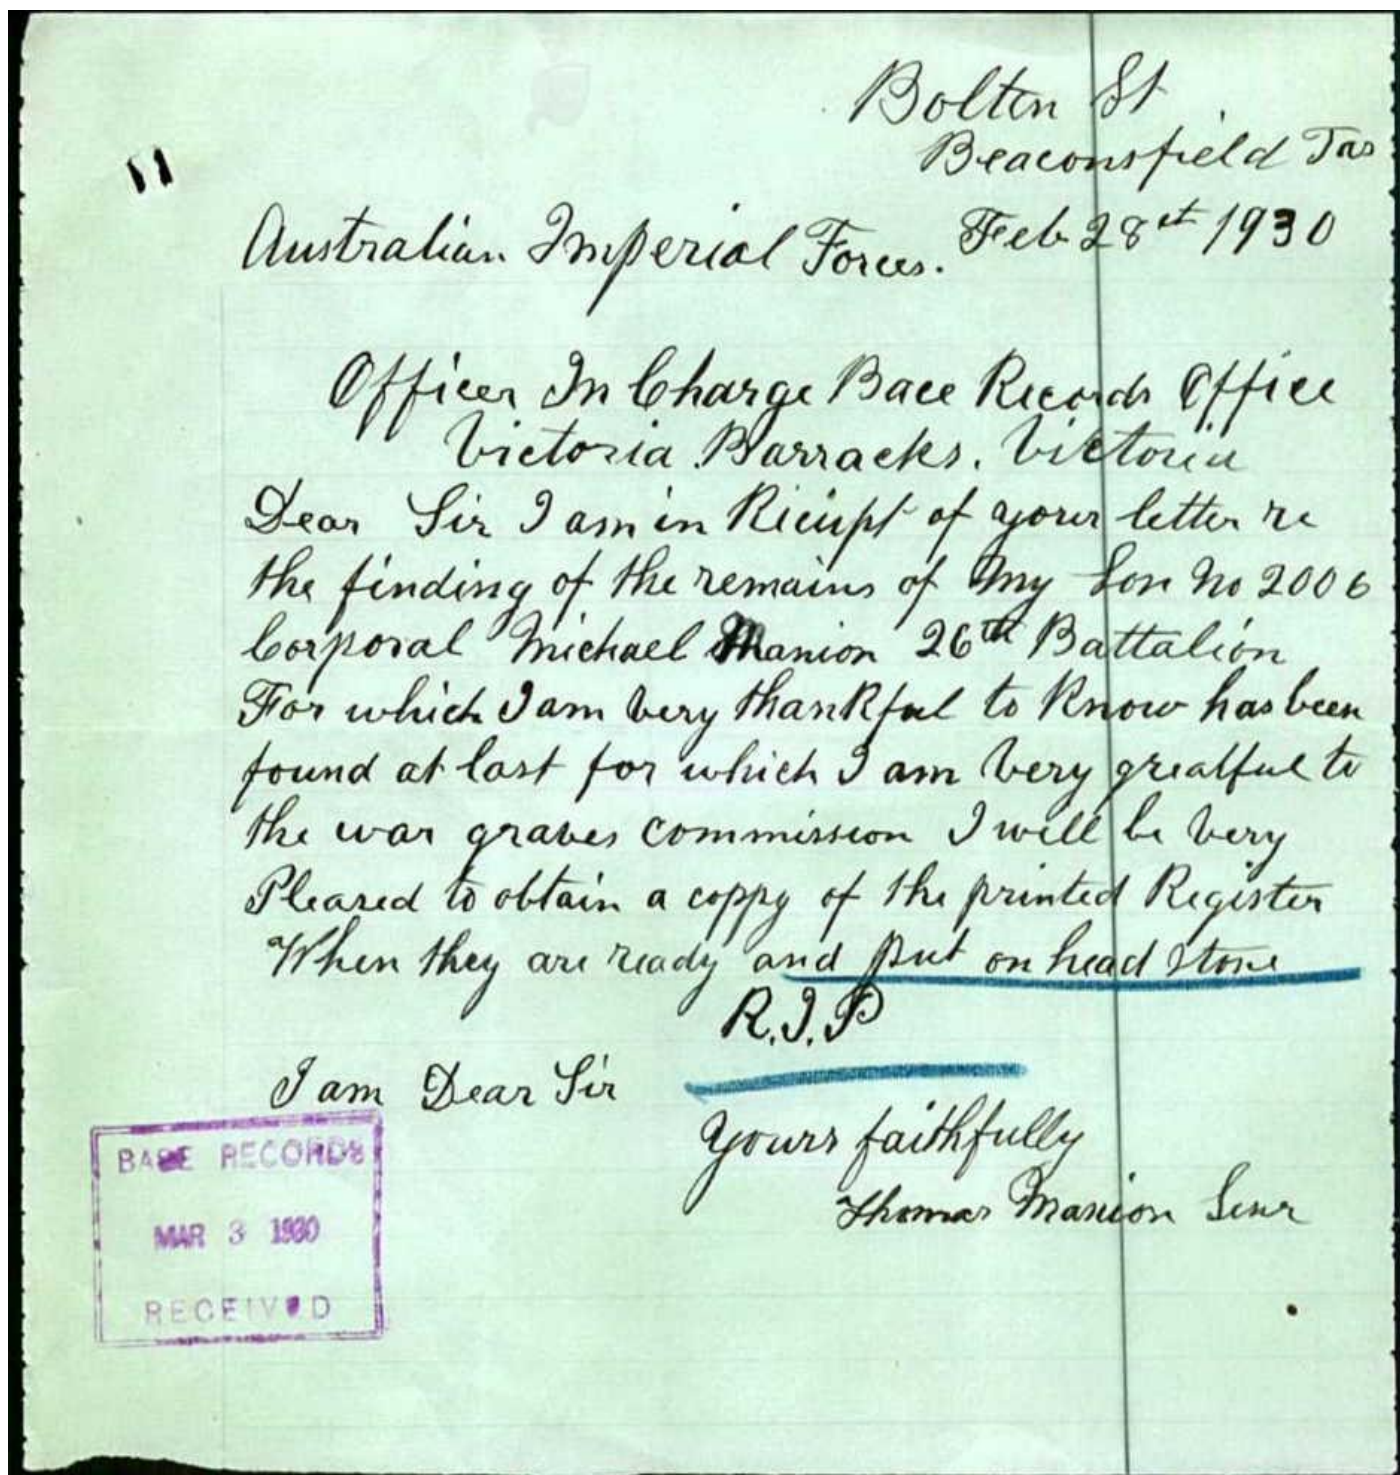 Bolten St
Beaconsfield Tas
Feb 28st 1930
Australian Imperial Forces.
Officer In Charge Bace Records Office
Victoria Barracks. Victoria
Dear Sir I am in Riciept of your letter re
the finding of the remains of My Son No 2006
Corporal Michael Manion 26th Battalion
For which I am very thankful to know has been
found at last for which I am very greatful to
the war graves commission I will be very
Pleased to obtain a coppy of the printed Register
When they are ready and put on head stone
R.I.P
I am Dear Sir
Yours faithfully
Thomas Manion Senr
BASE RECORDS
MAR 3 1930
RECEIVED